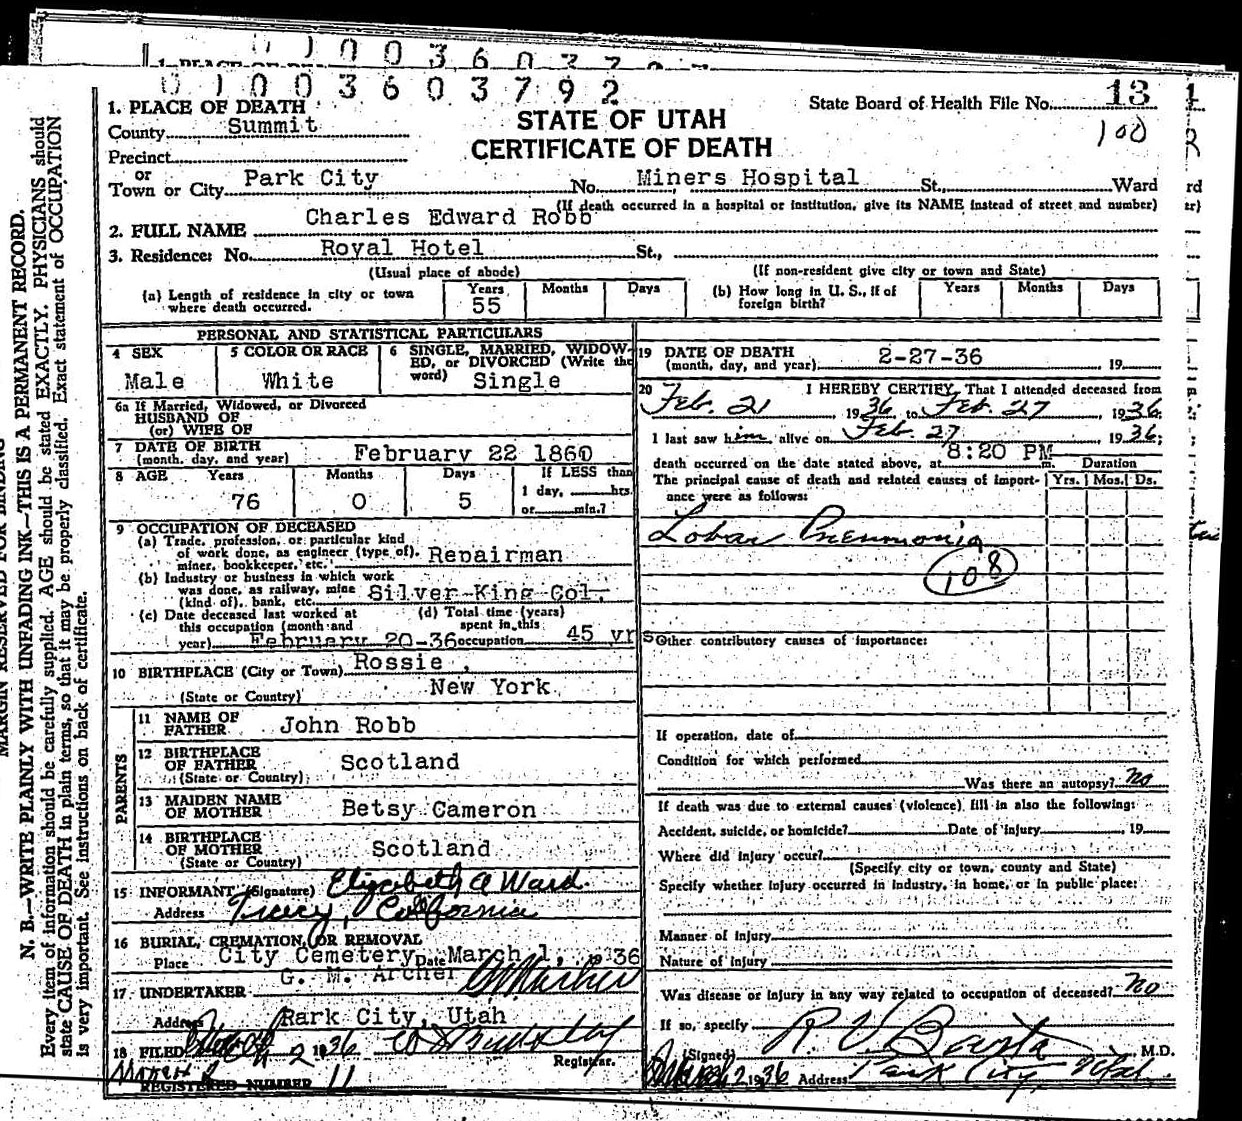 0 1 0 0 3 6 0 3 7 9 2
1. PLACE OF DEATH
State Board of Health File No. 13
County Summit
STATE OF UTAH
100
Precinct
CERTIFICATE OF DEATH
or
Town or City Park City No. Miners Hospital St., Ward
(If death occurred in a hospital or institution, give its NAME instead of street and number)
2. FULL NAME Charles Edward Robb
3. Residence: No. Royal Hotel St.,
(Usual place of abode) (If non-resident give city or town and State)
(a) Length of residence in city or town where death occurred. Years 55 Months Days
(b) How long in U. S., if of foreign birth? Years Months Days
PERSONAL AND STATISTICAL PARTICULARS
4 SEX Male
5 COLOR OR RACE White
6 SINGLE, MARRIED, WIDOWED, or DIVORCED (Write the word) Single
6a If Married, Widowed, or Divorced
HUSBAND OF
(or) WIFE OF
7 DATE OF BIRTH
(month, day, and year) February 22 1860
8 AGE Years 76 Months 0 Days 5 If LESS than 1 day, hrs. or min.?
9 OCCUPATION OF DECEASED
(a) Trade, profession, or particular kind
of work done, as engineer (type of),
miner, bookkeeper, etc. Repairman
(b) Industry or business in which work
was done, as railway, mine
(kind of), bank, etc. Silver King Col.
(c) Date deceased last worked at
this occupation (month and
year) February 20-36
(d) Total time (years)
spent in this
occupation 45 yrs
10 BIRTHPLACE (City or Town) Rossie,
(State or Country) New York
PARENTS
11 NAME OF
FATHER John Robb
12 BIRTHPLACE
OF FATHER Scotland
(State or Country)
13 MAIDEN NAME
OF MOTHER Betsy Cameron
14 BIRTHPLACE
OF MOTHER Scotland
(State or Country)
15 INFORMANT (Signature) Elizabeth A Ward.
Address Tracy, California
16 BURIAL, CREMATION, OR REMOVAL
Place City Cemetery Date March 1, 36
17 UNDERTAKER G. M. Archer
Address Park City, Utah
18 FILED March 2 1936
Registrar.
March 2
REGISTERED NUMBER 11
19 DATE OF DEATH
(month, day, and year) 2-27-36 19
20 I HEREBY CERTIFY, That I attended deceased from
Feb. 21, 1936 to Feb. 27, 1936
I last saw him alive on Feb. 27, 1936;
death occurred on the date stated above, at 8:20 PM m. Duration
The principal cause of death and related causes of importance were as follows: Yrs. Mos. Ds.
Lobar Pneumonia
108
Other contributory causes of importance:
If operation, date of
Condition for which performed
Was there an autopsy? no
If death was due to external causes (violence) fill in also the following:
Accident, suicide, or homicide? Date of injury 19
Where did injury occur?
(Specify city or town, county and State)
Specify whether injury occurred in industry, in home, or in public place:
Manner of Injury
Nature of Injury
Was disease or injury in any way related to occupation of deceased? no
If so, specify
(Signed) M.D.
March 2 1936 Address Park City, Utah.
MARGIN RESERVED FOR BINDING
N. B.—WRITE PLAINLY WITH UNFADING INK—THIS IS A PERMANENT RECORD.
Every item of information should be carefully supplied. AGE should be stated EXACTLY. PHYSICIANS should
state CAUSE OF DEATH in plain terms, so that it may be properly classified. Exact statement of OCCUPATION
is very important. See instructions on back of certificate.